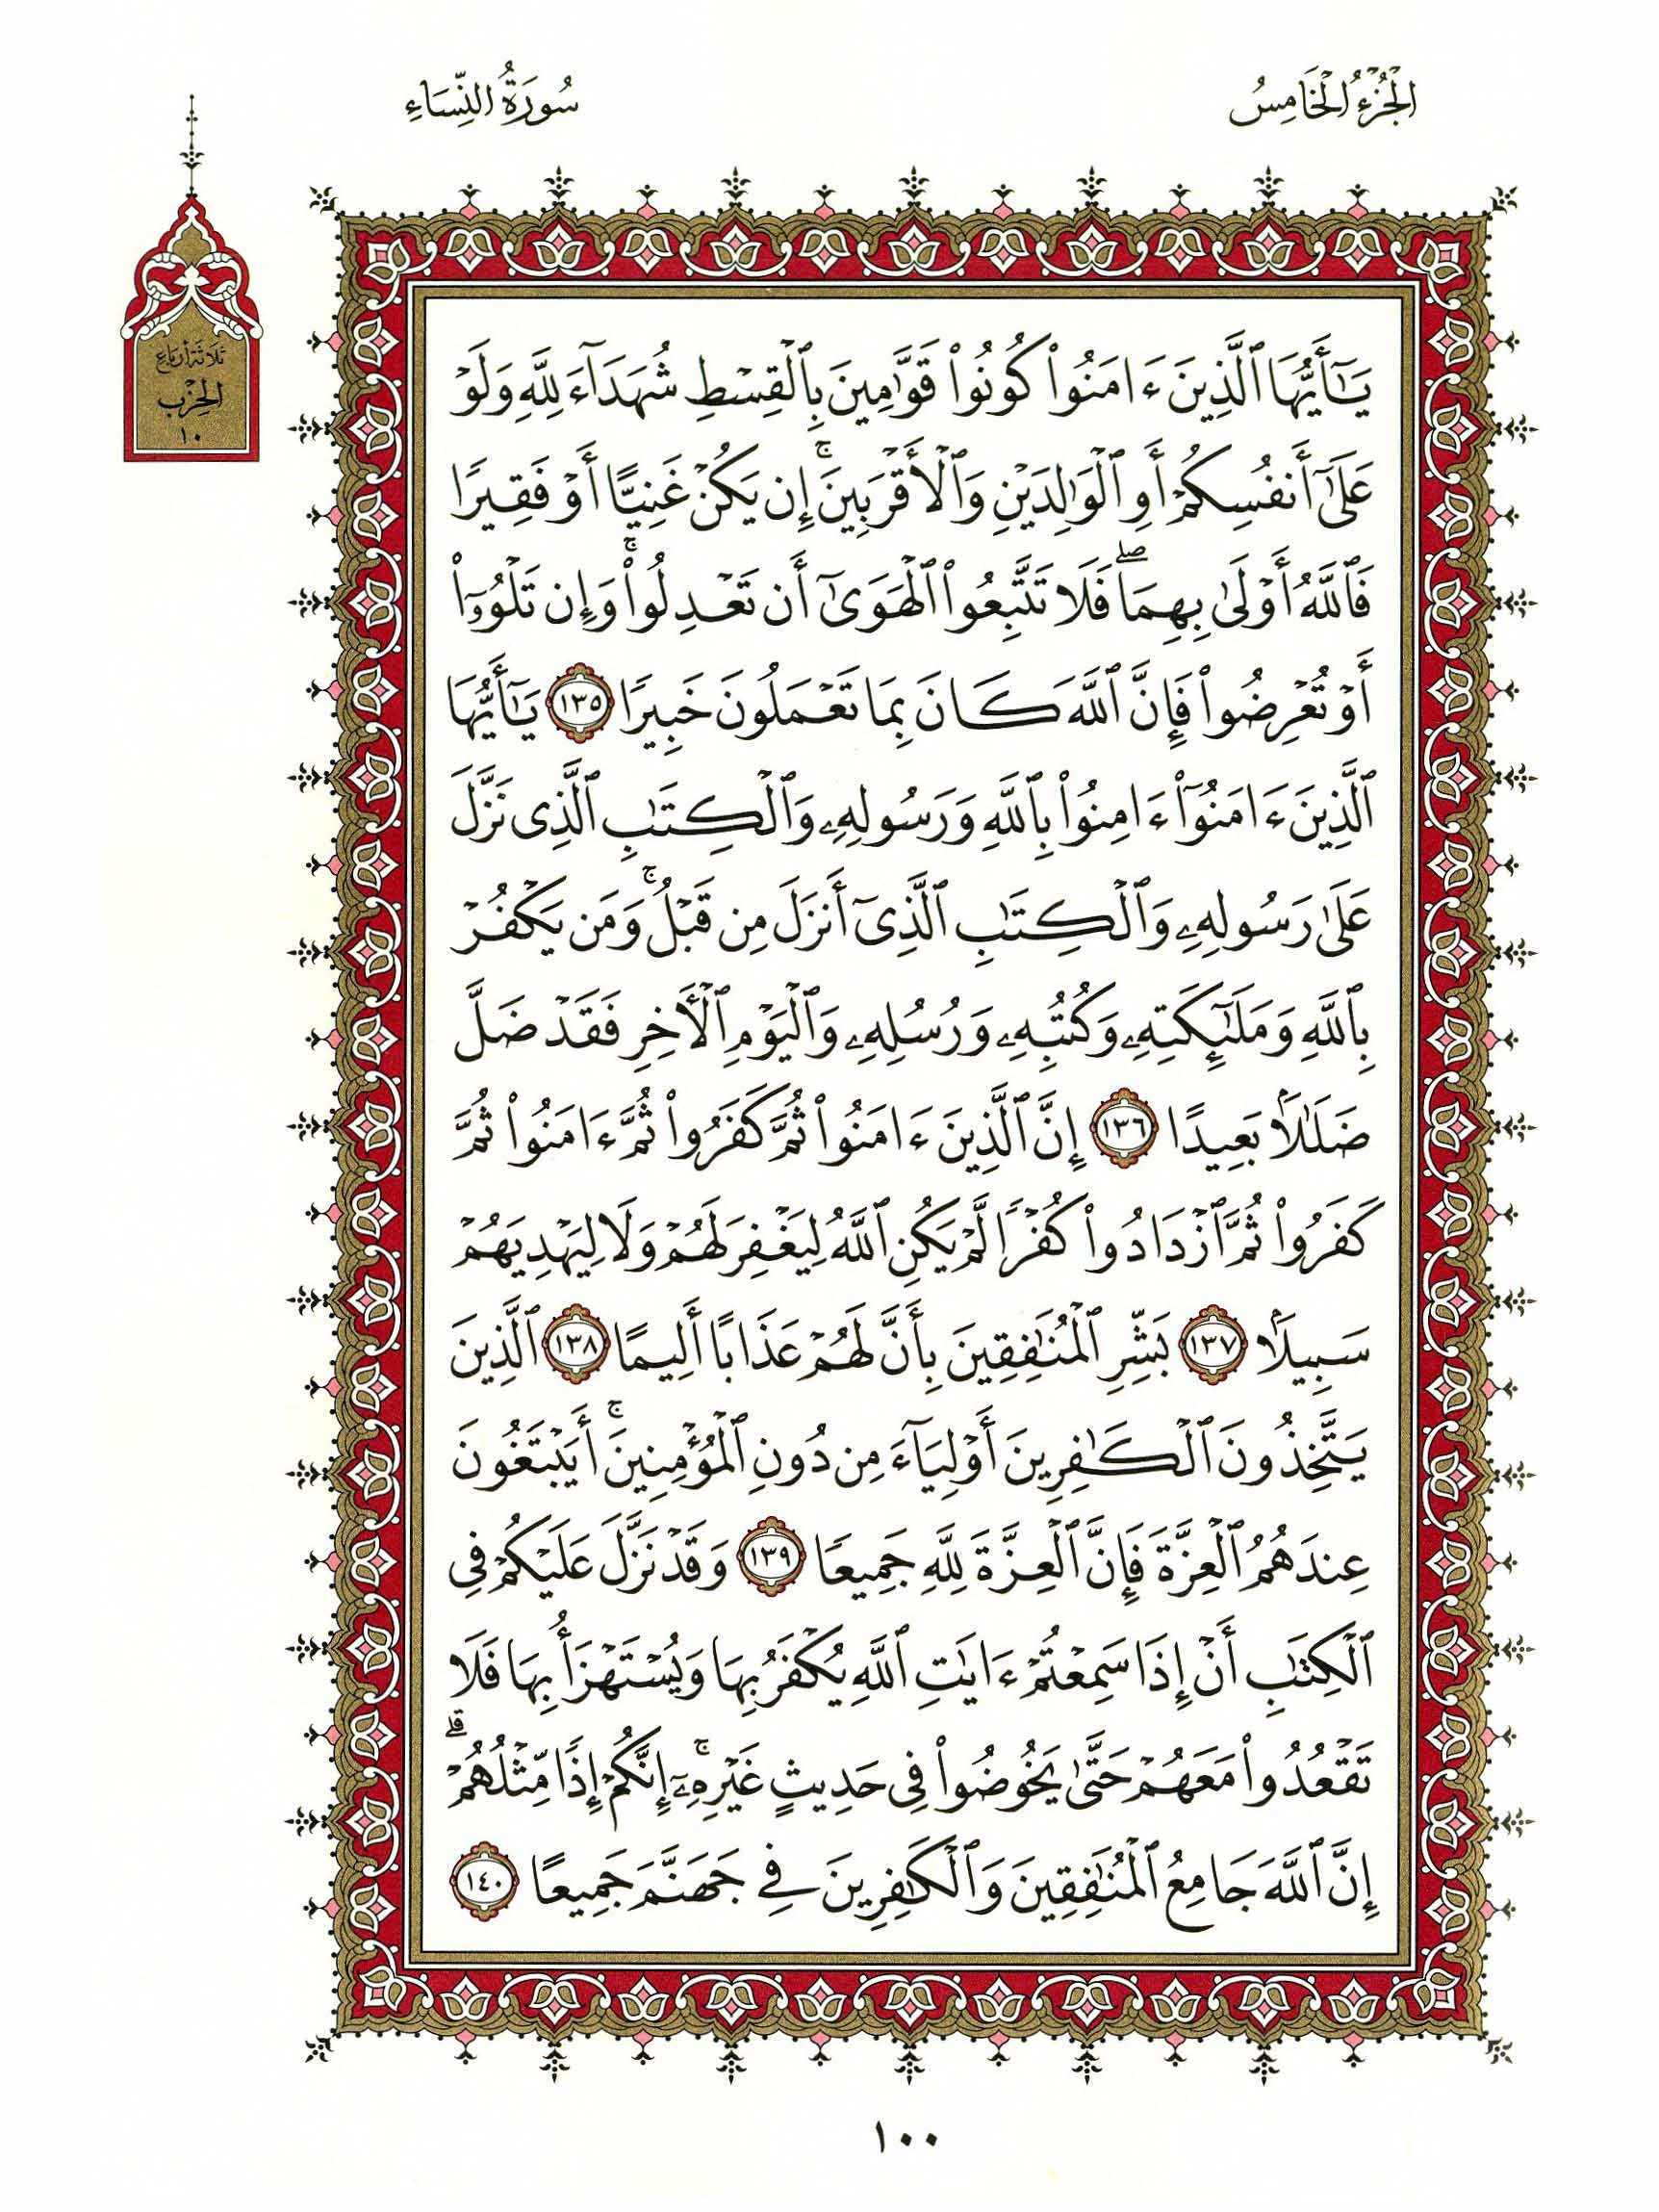 الجُزْءُ الخَامِسُ
سُورَةُ النِّسَاءِ
ثَلَاثَةُ أَرْبَاعِ
الحِزْبِ
١٠
يَٰٓأَيُّهَا ٱلَّذِينَ ءَامَنُوا۟ كُونُوا۟ قَوَّٰمِينَ بِٱلْقِسْطِ شُهَدَآءَ لِلَّهِ وَلَوْ
عَلَىٰٓ أَنفُسِكُمْ أَوِ ٱلْوَٰلِدَيْنِ وَٱلْأَقْرَبِينَ ۚ إِن يَكُنْ غَنِيًّا أَوْ فَقِيرًا
فَٱللَّهُ أَوْلَىٰ بِهِمَا ۖ فَلَا تَتَّبِعُوا۟ ٱلْهَوَىٰٓ أَن تَعْدِلُوا۟ ۚ وَإِن تَلْوُۥٓا۟
أَوْ تُعْرِضُوا۟ فَإِنَّ ٱللَّهَ كَانَ بِمَا تَعْمَلُونَ خَبِيرًا ١٣٥ يَٰٓأَيُّهَا
ٱلَّذِينَ ءَامَنُوٓا۟ ءَامِنُوا۟ بِٱللَّهِ وَرَسُولِهِۦ وَٱلْكِتَٰبِ ٱلَّذِى نَزَّلَ
عَلَىٰ رَسُولِهِۦ وَٱلْكِتَٰبِ ٱلَّذِىٓ أَنزَلَ مِن قَبْلُ ۚ وَمَن يَكْفُرْ
بِٱللَّهِ وَمَلَٰٓئِكَتِهِۦ وَكُتُبِهِۦ وَرُسُلِهِۦ وَٱلْيَوْمِ ٱلْءَاخِرِ فَقَدْ ضَلَّ
ضَلَٰلًۢا بَعِيدًا ١٣٦ إِنَّ ٱلَّذِينَ ءَامَنُوا۟ ثُمَّ كَفَرُوا۟ ثُمَّ ءَامَنُوا۟ ثُمَّ
كَفَرُوا۟ ثُمَّ ٱزْدَادُوا۟ كُفْرًا لَّمْ يَكُنِ ٱللَّهُ لِيَغْفِرَ لَهُمْ وَلَا لِيَهْدِيَهُمْ
سَبِيلًۢا ١٣٧ بَشِّرِ ٱلْمُنَٰفِقِينَ بِأَنَّ لَهُمْ عَذَابًا أَلِيمًا ١٣٨ ٱلَّذِينَ
يَتَّخِذُونَ ٱلْكَٰفِرِينَ أَوْلِيَآءَ مِن دُونِ ٱلْمُؤْمِنِينَ ۚ أَيَبْتَغُونَ
عِندَهُمُ ٱلْعِزَّةَ فَإِنَّ ٱلْعِزَّةَ لِلَّهِ جَمِيعًا ١٣٩ وَقَدْ نَزَّلَ عَلَيْكُمْ فِى
ٱلْكِتَٰبِ أَنْ إِذَا سَمِعْتُمْ ءَايَٰتِ ٱللَّهِ يُكْفَرُ بِهَا وَيُسْتَهْزَأُ بِهَا فَلَا
تَقْعُدُوا۟ مَعَهُمْ حَتَّىٰ يَخُوضُوا۟ فِى حَدِيثٍ غَيْرِهِۦٓ ۚ إِنَّكُمْ إِذًا مِّثْلُهُمْ ۗ
إِنَّ ٱللَّهَ جَامِعُ ٱلْمُنَٰفِقِينَ وَٱلْكَٰفِرِينَ فِى جَهَنَّمَ جَمِيعًا ١٤٠
١٠٠